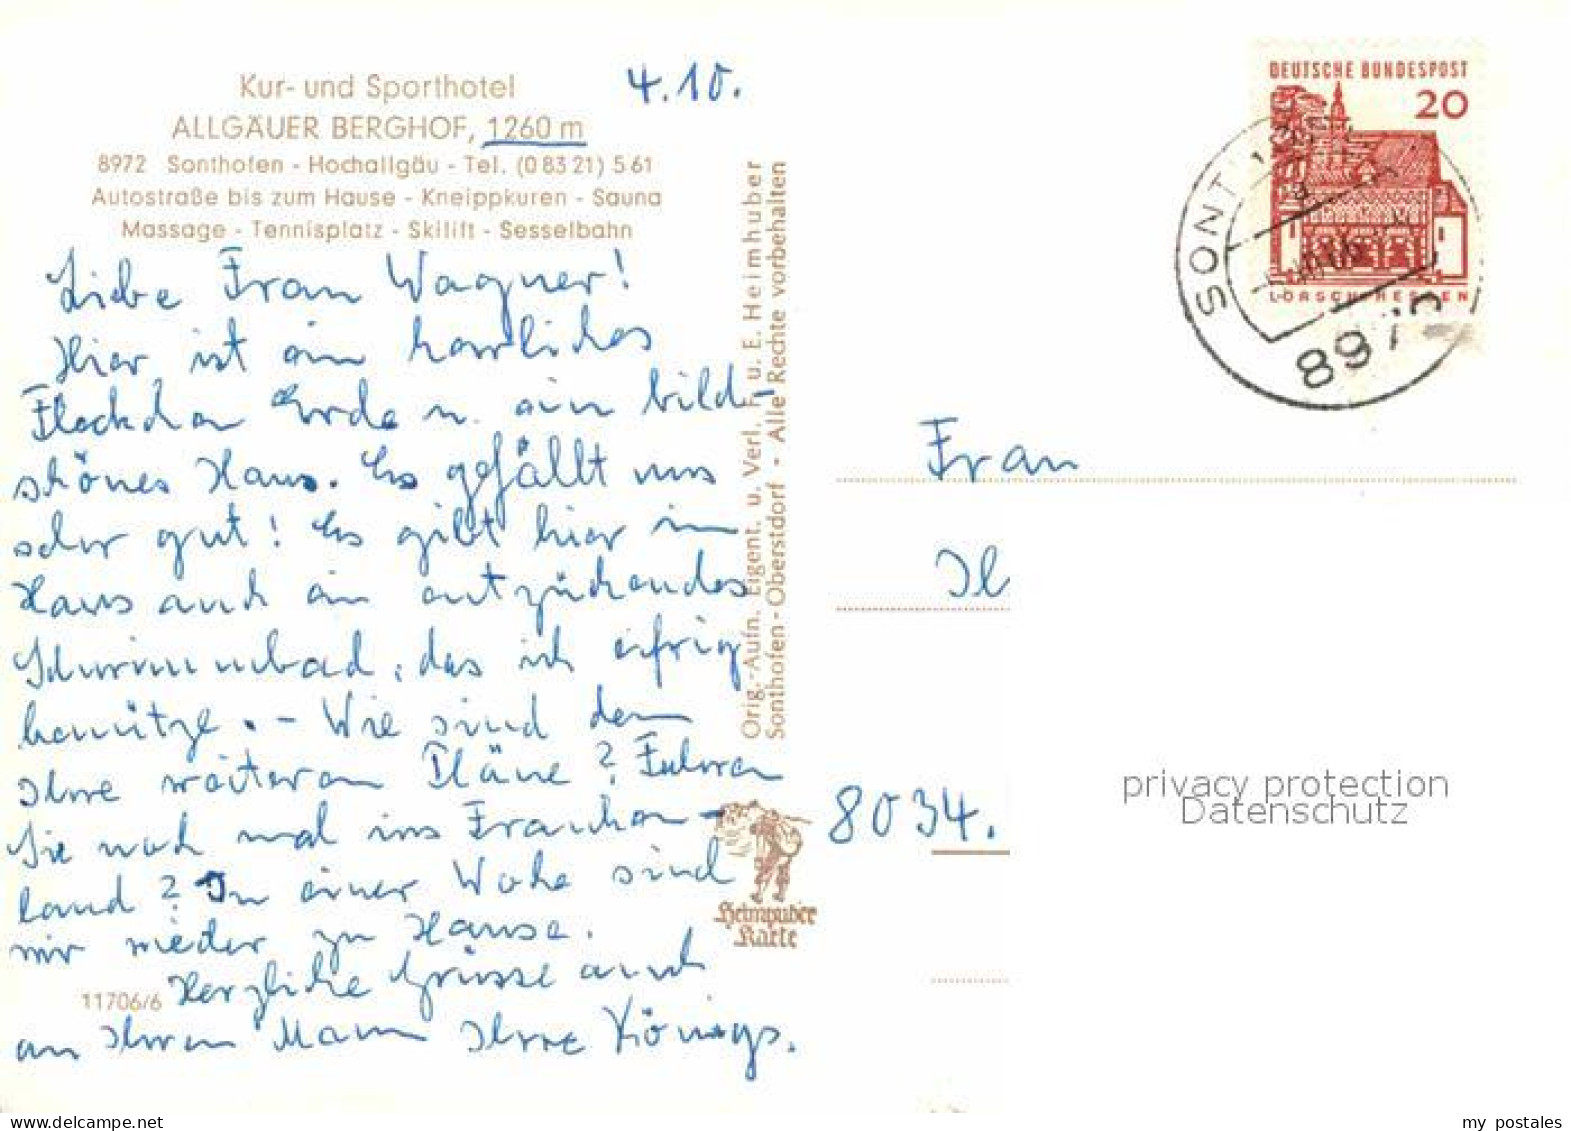 Kur- und Sporthotel
ALLGÄUER BERGHOF, 1260 m
8972 Sonthofen - Hochallgäu - Tel. (0 83 21) 5 61
Autostraße bis zum Hause - Kneippkuren - Sauna
Massage - Tennisplatz - Skilift - Sesselbahn
4.10.
Liebe Frau Wagner!
Hier ist ein herrliches
Fleckchen Erde u. ein bild-
schönes Haus. Es gefällt uns
sehr gut! Es gibt hier im
Haus auch ein entzückendes
Schwimmbad, das ich eifrig
benütze. - Wie sind denn
Ihre weiteren Pläne? Fahren
Sie noch mal ins Franken-
land? In einer Woche sind
wir wieder zu Hause.
Herzliche Grüsse auch
an Ihren Mann Ihre Königs.
11706/6
Orig.-Aufn. Eigent. u. Verl. F. u. E. Heimhuber
Sonthofen - Oberstdorf · Alle Rechte vorbehalten
Heimhuber
Karte
DEUTSCHE BUNDESPOST
20
LORSCH HESSEN
SONTHOFEN
8972
Frau
8034.
privacy protection
Datenschutz
my postales